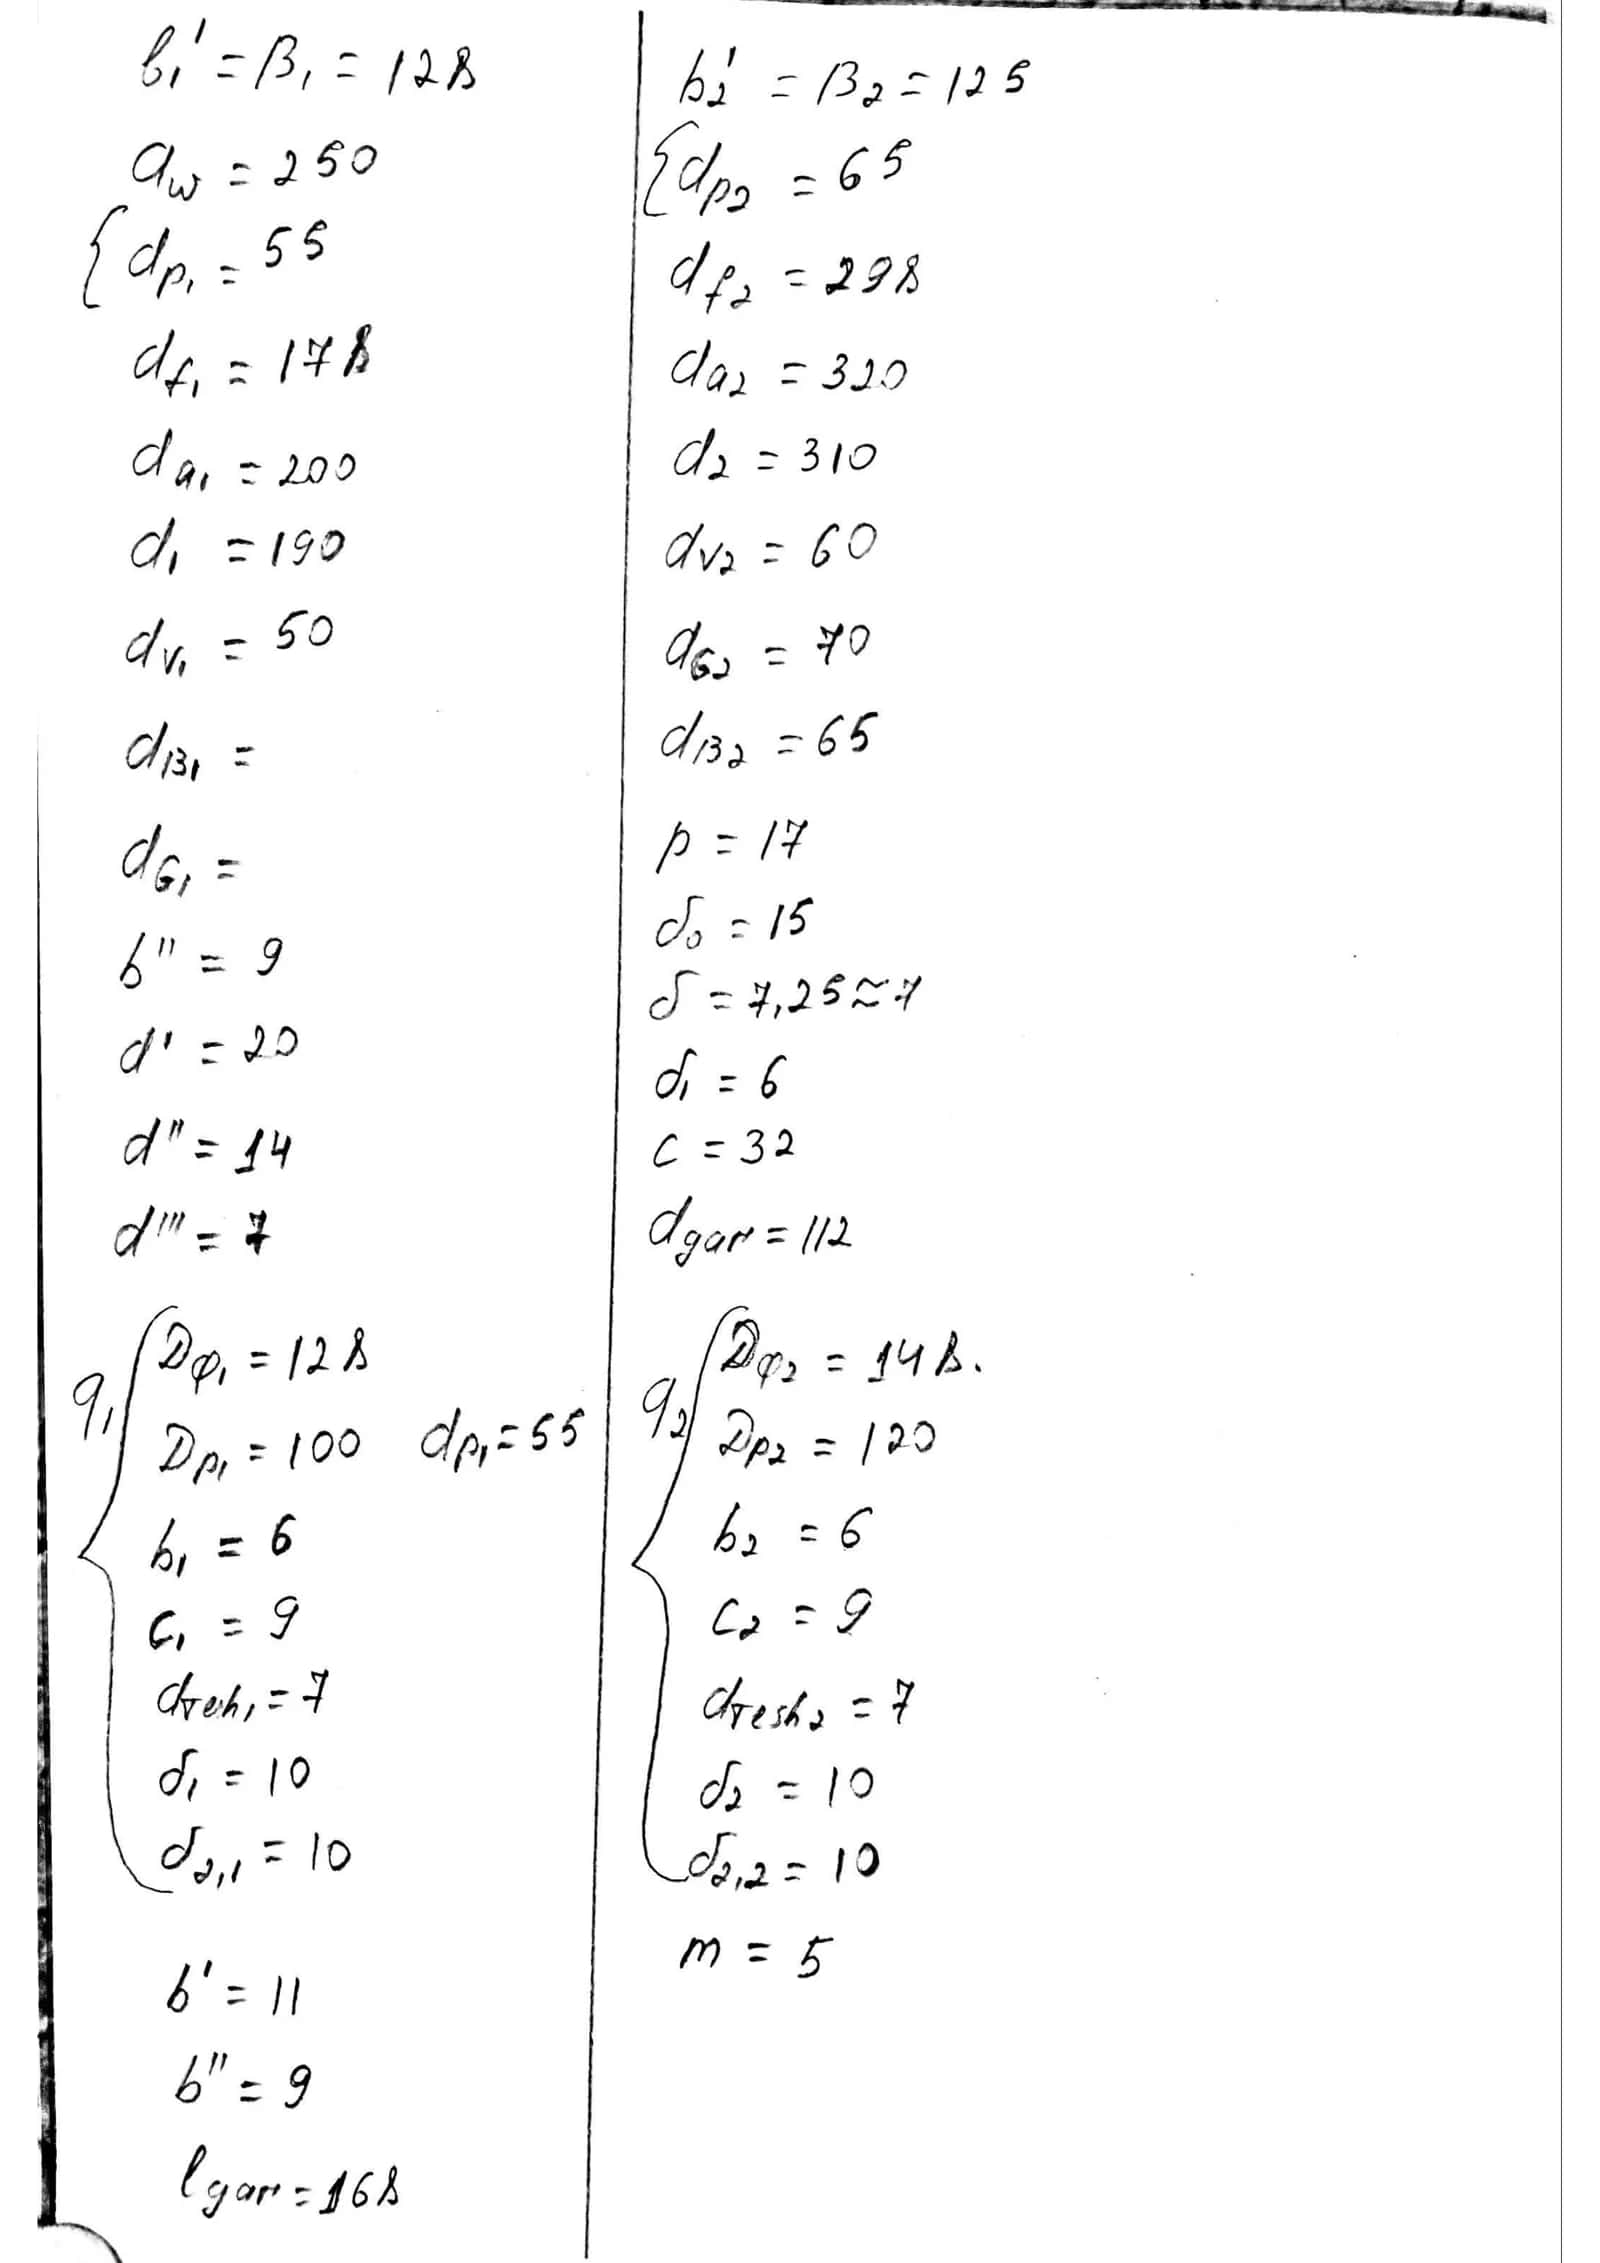 b₁' = B₁ = 128
a_w = 250
{ d_p₁ = 55
d_f₁ = 178
d_a₁ = 200
d₁ = 190
d_v₁ = 50
d_B₁ =
d_G₁ =
b'' = 9
d' = 20
d'' = 14
d''' = 7
q₁ { D_φ₁ = 128
D_p₁ = 100 d_p₁ = 55
b₁ = 6
c₁ = 9
d_теh₁ = 7
δ₁ = 10
δ₂,₁ = 10
b' = 11
b'' = 9
l_gar = 168
b₂' = B₂ = 125
{ d_p₂ = 65
d_f₂ = 298
d_a₂ = 320
d₂ = 310
d_v₂ = 60
d_G₂ = 70
d_B₂ = 65
p = 17
δ₀ = 15
δ = 7,25 ≈ 7
δ₁ = 6
c = 32
d_gar = 112
q₂ { D_φ₂ = 148.
D_p₂ = 120
b₂ = 6
c₂ = 9
d_тesh₂ = 7
δ₂ = 10
δ₂,₂ = 10
m = 5